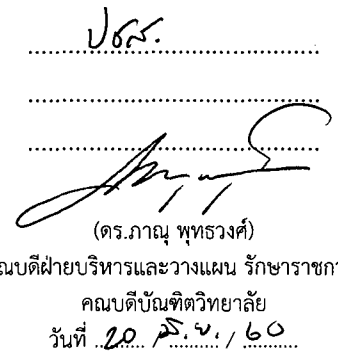 ปชส.
(ดร.ภาณุ พุทธวงศ์)
ณบดีฝ่ายบริหารและวางแผน รักษาราชกา
คณบดีบัณฑิตวิทยาลัย
วันที่ 20 / มิ.ย. / 60